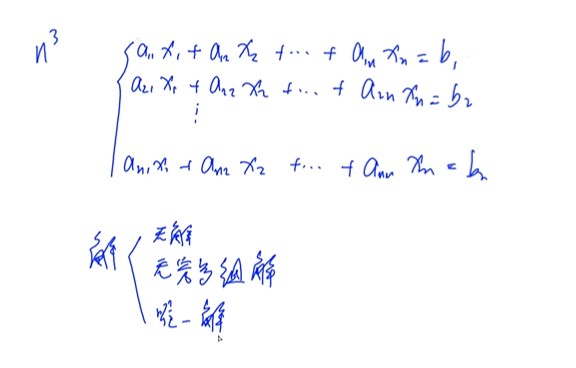 n³
a₁₁x₁ + a₁₂x₂ + ⋯ + a₁ₙxₙ = b₁
a₂₁x₁ + a₂₂x₂ + ⋯ + a₂ₙxₙ = b₂
⋮
aₙ₁x₁ + aₙ₂x₂ + ⋯ + aₙₙxₙ = bₙ
解
无解
无穷多组解
唯一解